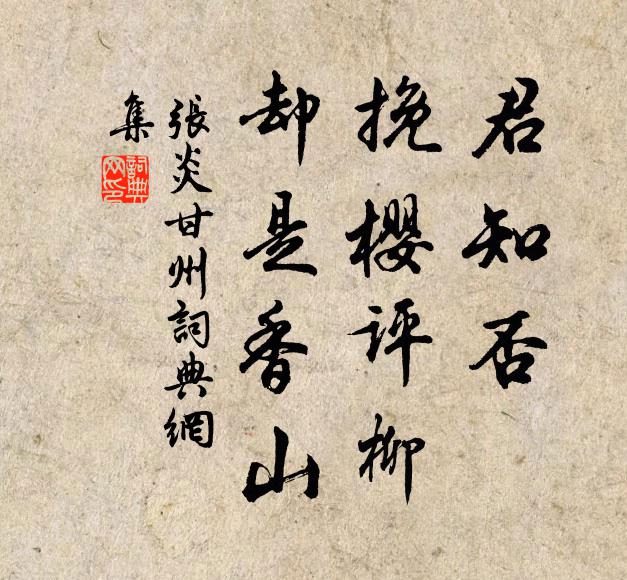 君知否
挽樱评柳
却是香山
張炎甘州詞典網
集
詞典网印